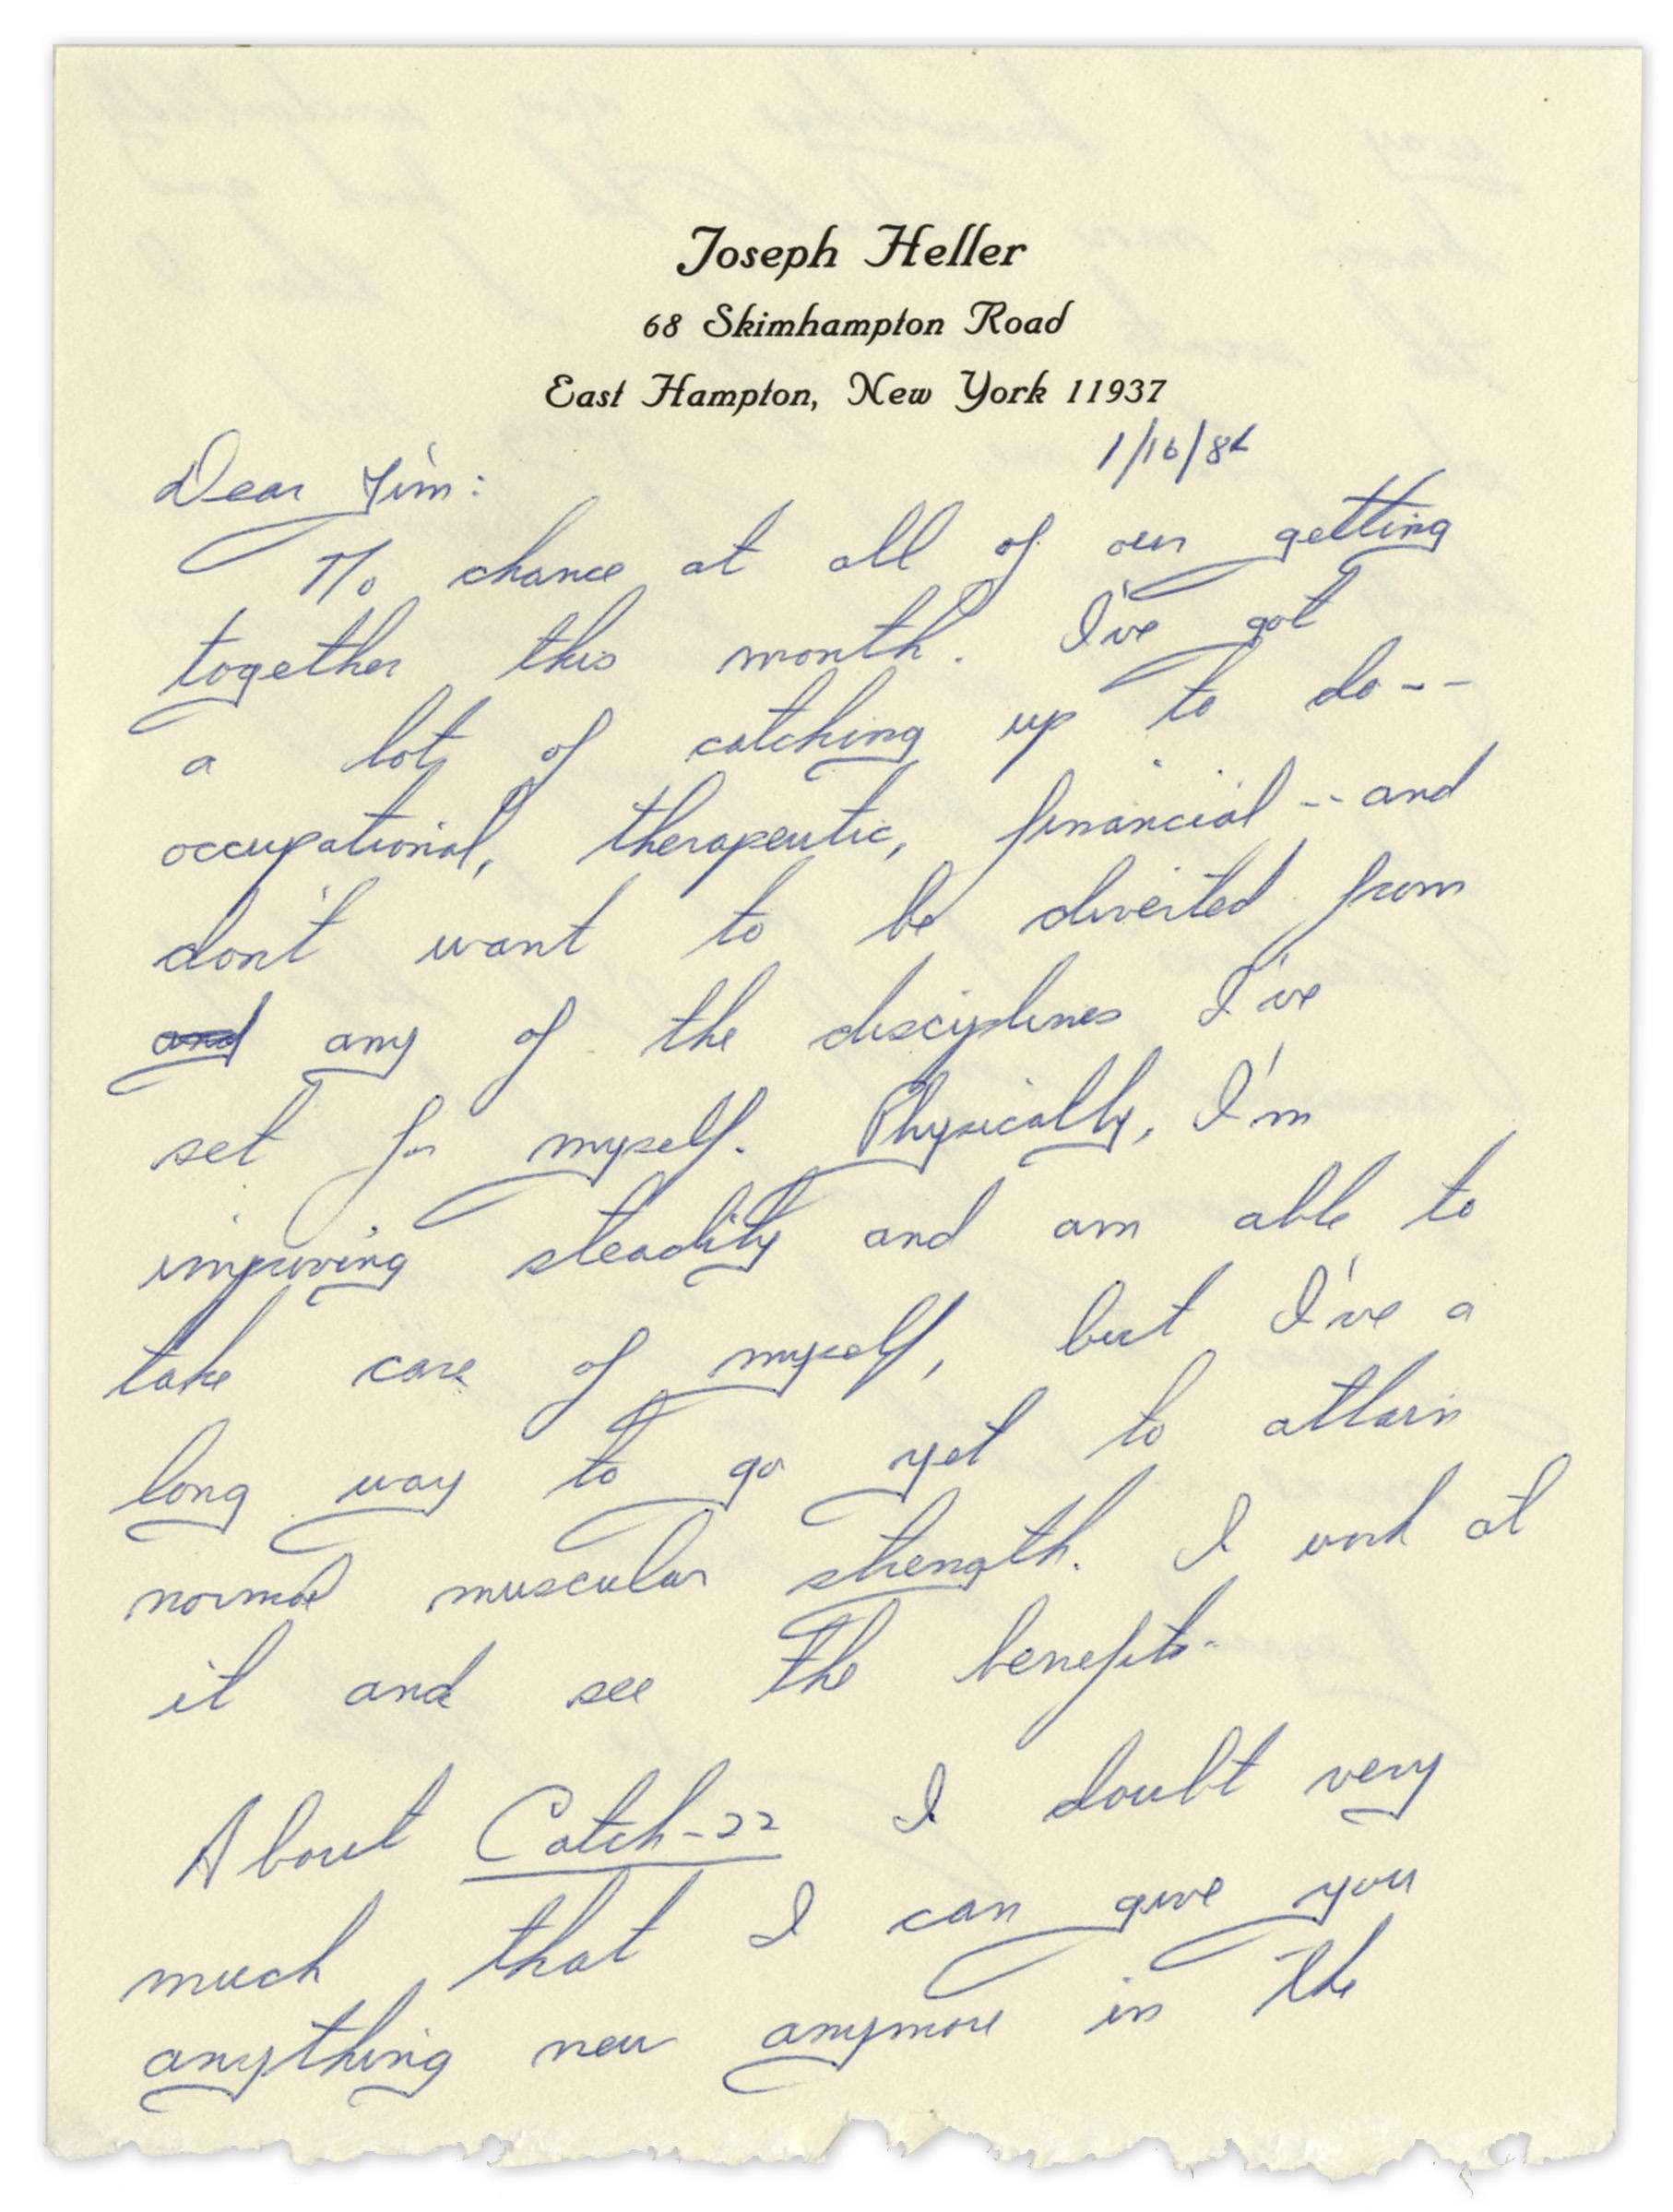 Joseph Heller
68 Skimhampton Road
East Hampton, New York 11937
1/16/82
Dear Jim:
No chance at all of our getting
together this month. I've got
a lot of catching up to do --
occupational, therapeutic, financial -- and
don't want to be diverted from
and any of the disciplines I've
set for myself. Physically, I'm
improving steadily and am able to
take care of myself, but I've a
long way to go yet to attain
normal muscular strength. I work at
it and see the benefits.
About Catch-22 I doubt very
much that I can give you
anything new anymore in the